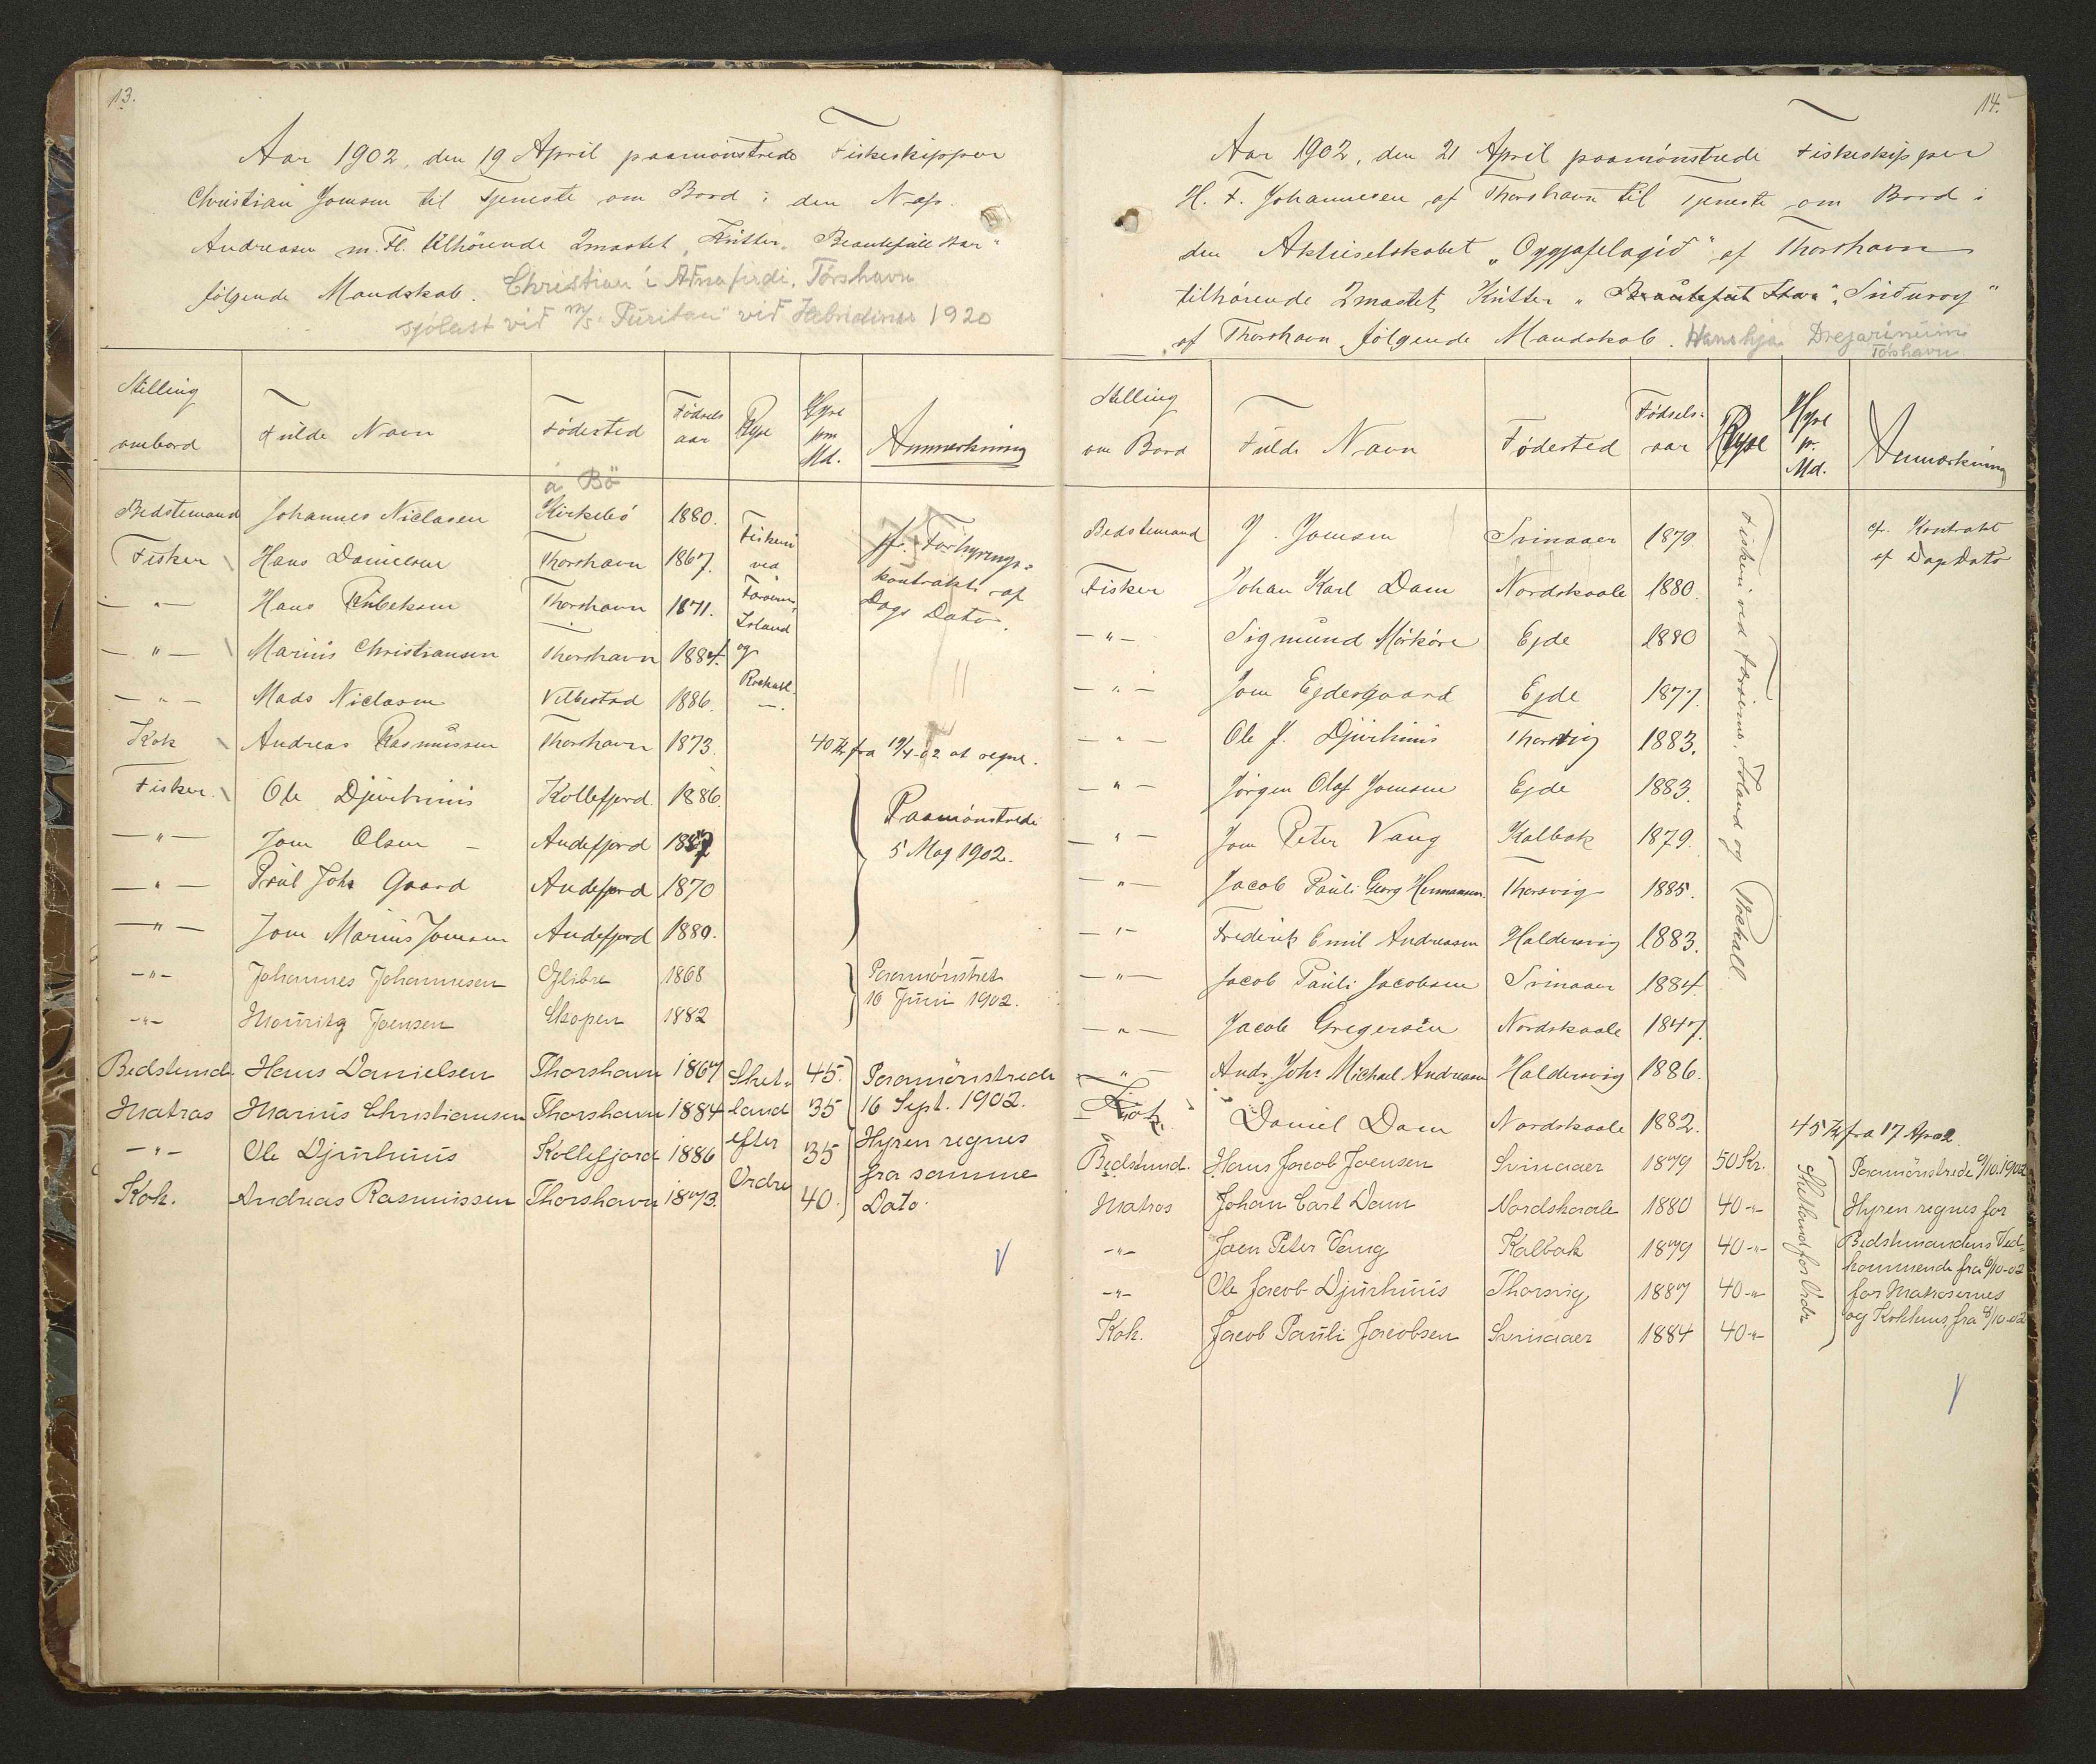 13.
Aar 1902, den 19 April paamönstrede Fiskeskipper
Christian Joensen til Tjeneste om Bord i den N. af
Andreasen m. Fl. tilhörende 2mastet Kutter "Beautefull Star"
følgende Mandskab. Christian í Árnafirdi, Tórshavn
sjólast við M/S "Puritan" við Hebridirnar 1920
Stilling ombord | Fulde Navn | Födested | Födsels aar | Rejse | Hyre pm Md. | Anmærkning
á Bö
Bedstemand Johannes Niclasen Kirkebö 1880. Fiskeri jf. Forhyrings-
Fisker Hans Danielsen Thorshavn 1867. ved kontrakt af
— " — Hans Rubeksen Thorshavn 1871. Færöerne, Island Dags Dato.
— " — Marius Christiansen Thorshavn 1884. og
— " — Mads Niclasen Velbestad 1886. Rockall.
Kok Andreas Rasmussen Thorshavn 1873. 40 Kr fra 19/4-02 at regne.
Fisker. Ole Djurhuus Kollefjord 1886. Paamönstrede
— " — Joen Olsen Andefjord 1887 5 Maj 1902.
— " — Poul Johs Gaard Andefjord 1870
— " — Joen Marius Joensen Andefjord 1880.
— " — Johannes Johannesen Glibre 1868 Paamönstret
— " — Mouritz Joensen Skopen 1882 16 Juni 1902.
Bedstemd. Hans Danielsen Thorshavn 1867 Shet- 45. Paamönstrede
Matros Marius Christiansen Thorshavn 1884 land 35 16 Sept. 1902.
— " — Ole Djurhuus Kollefjord 1886 efter 35 Hyren regnes
Kok. Andreas Rasmussen Thorshavn 1873. Ordre 40. fra samme
Dato.
14.
Aar 1902, den 21 April paamónstrede Fiskeskipper
H. F. Johannesen af Thorshavn til Tjeneste om Bord i
den Aktieselskabet "Oyggjafelagið" af Thorshavn
tilhórende 2mastet Kutter "Beautefull Star" "Suduroy"
af Thorshavn følgende Mandskab. Hans hjá Drejarinum
Tórshavn
Stilling om Bord | Fulde Navn | Födested | Födsels-aar | Rejse | Hyre pr. Md. | Anmærkning
Bedstemand J. Joensen Svinaaer 1879 cf. Kontrakt
af Dags Dato
Fisker Johan Karl Dam Nordskaale 1880.
— " — Sigmund Mörköre Ejde 1880
— " — Joen Ejdesgaard Ejde 1877.
— " — Ole J. Djurhuus Thorsvig 1883.
— " — Jörgen Olaf Joensen Ejde 1883.
— " — Joen Peter Vang Kalbak 1879.
— " — Jacob Pauli Georg Hermansen Thorsvig 1885.
— " — Frederik Emil Andreasen Haldersvig 1883.
— " — Jacob Pauli Jacobsen Svinaaer 1884.
— " — Jacob Gregersen Nordskaale 1847.
— " — Andr. Johs Michael Andreasen Haldersvig 1886.
Fiskeri ved Færöerne, Island og Rockall.
Kok. Daniel Dam Nordskaale 1882. 45 Kr fra 17 Apr 02
Bedstemd. Hans Jacob Joensen Svinaaer 1879 50 Kr. Paamönstrede 6/10.1902
Matros Johan Carl Dam Nordskaale 1880 40 -"- Hyren regnes for
— " — Joen Peter Vang Kalbak 1879 40 -"- Bedstemandens Ved-
kommende fra 6/10-02
— " — Ole Jacob Djurhuus Thorsvig 1887 40 -"- for Matrosernes
Kok. Jacob Pauli Jacobsen Svinaaer 1884 40 -"- og Kokkens fra 8/10-02
Shetland for Ordre